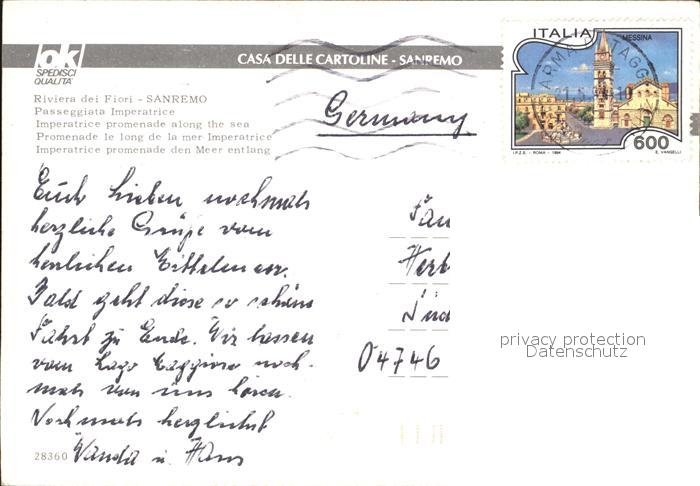 ok
SPEDISCI
QUALITÀ
CASA DELLE CARTOLINE - SANREMO
ITALIA
MESSINA
ARMA DI TAGGIA
600
I.P.Z.S. - ROMA - 1994
E. VANGELLI
Riviera dei Fiori - SANREMO
Passeggiata Imperatrice
Imperatrice promenade along the sea
Promenade le long de la mer Imperatrice
Imperatrice promenade den Meer entlang
Germany
Euch lieben nochmals
herzliche Grüße vom
herrlichen
Bald geht diese so schöne
Fahrt zu Ende. Wir lassen
vom Lago Maggiore noch-
mals von uns hören.
Nochmals herzlichst
Wanda u. Hans
04746
28360
privacy protection
Datenschutz